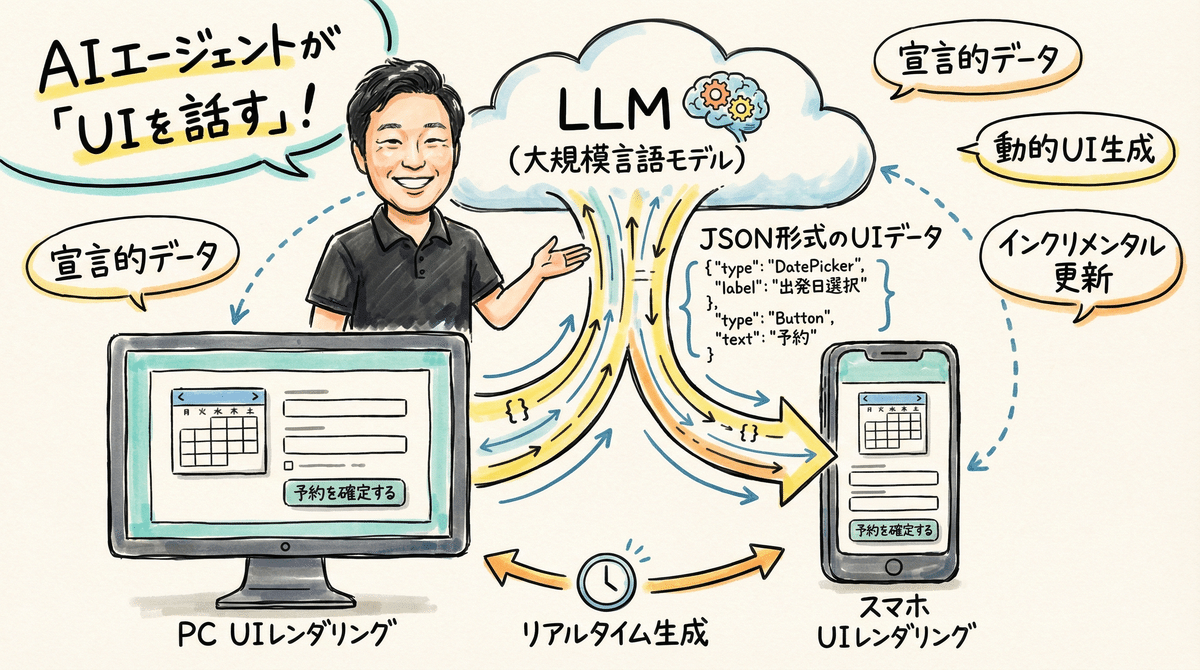 AIエージェントが
「UIを話す」!
LLM
(大規模言語モデル)
宣言的データ
動的UI生成
インクリメンタル
更新
宣言的データ
JSON形式のUIデータ
{"type": "DatePicker",
"label": "出発日選択"
},
"type": "Button",
"text": "予約"
}
{}
{}
< >
月 火 水 木 土
予約を確定する
< >
月 火 水 木 土
予約を確定する
PC UIレンダリング
リアルタイム生成
スマホ
UIレンダリング